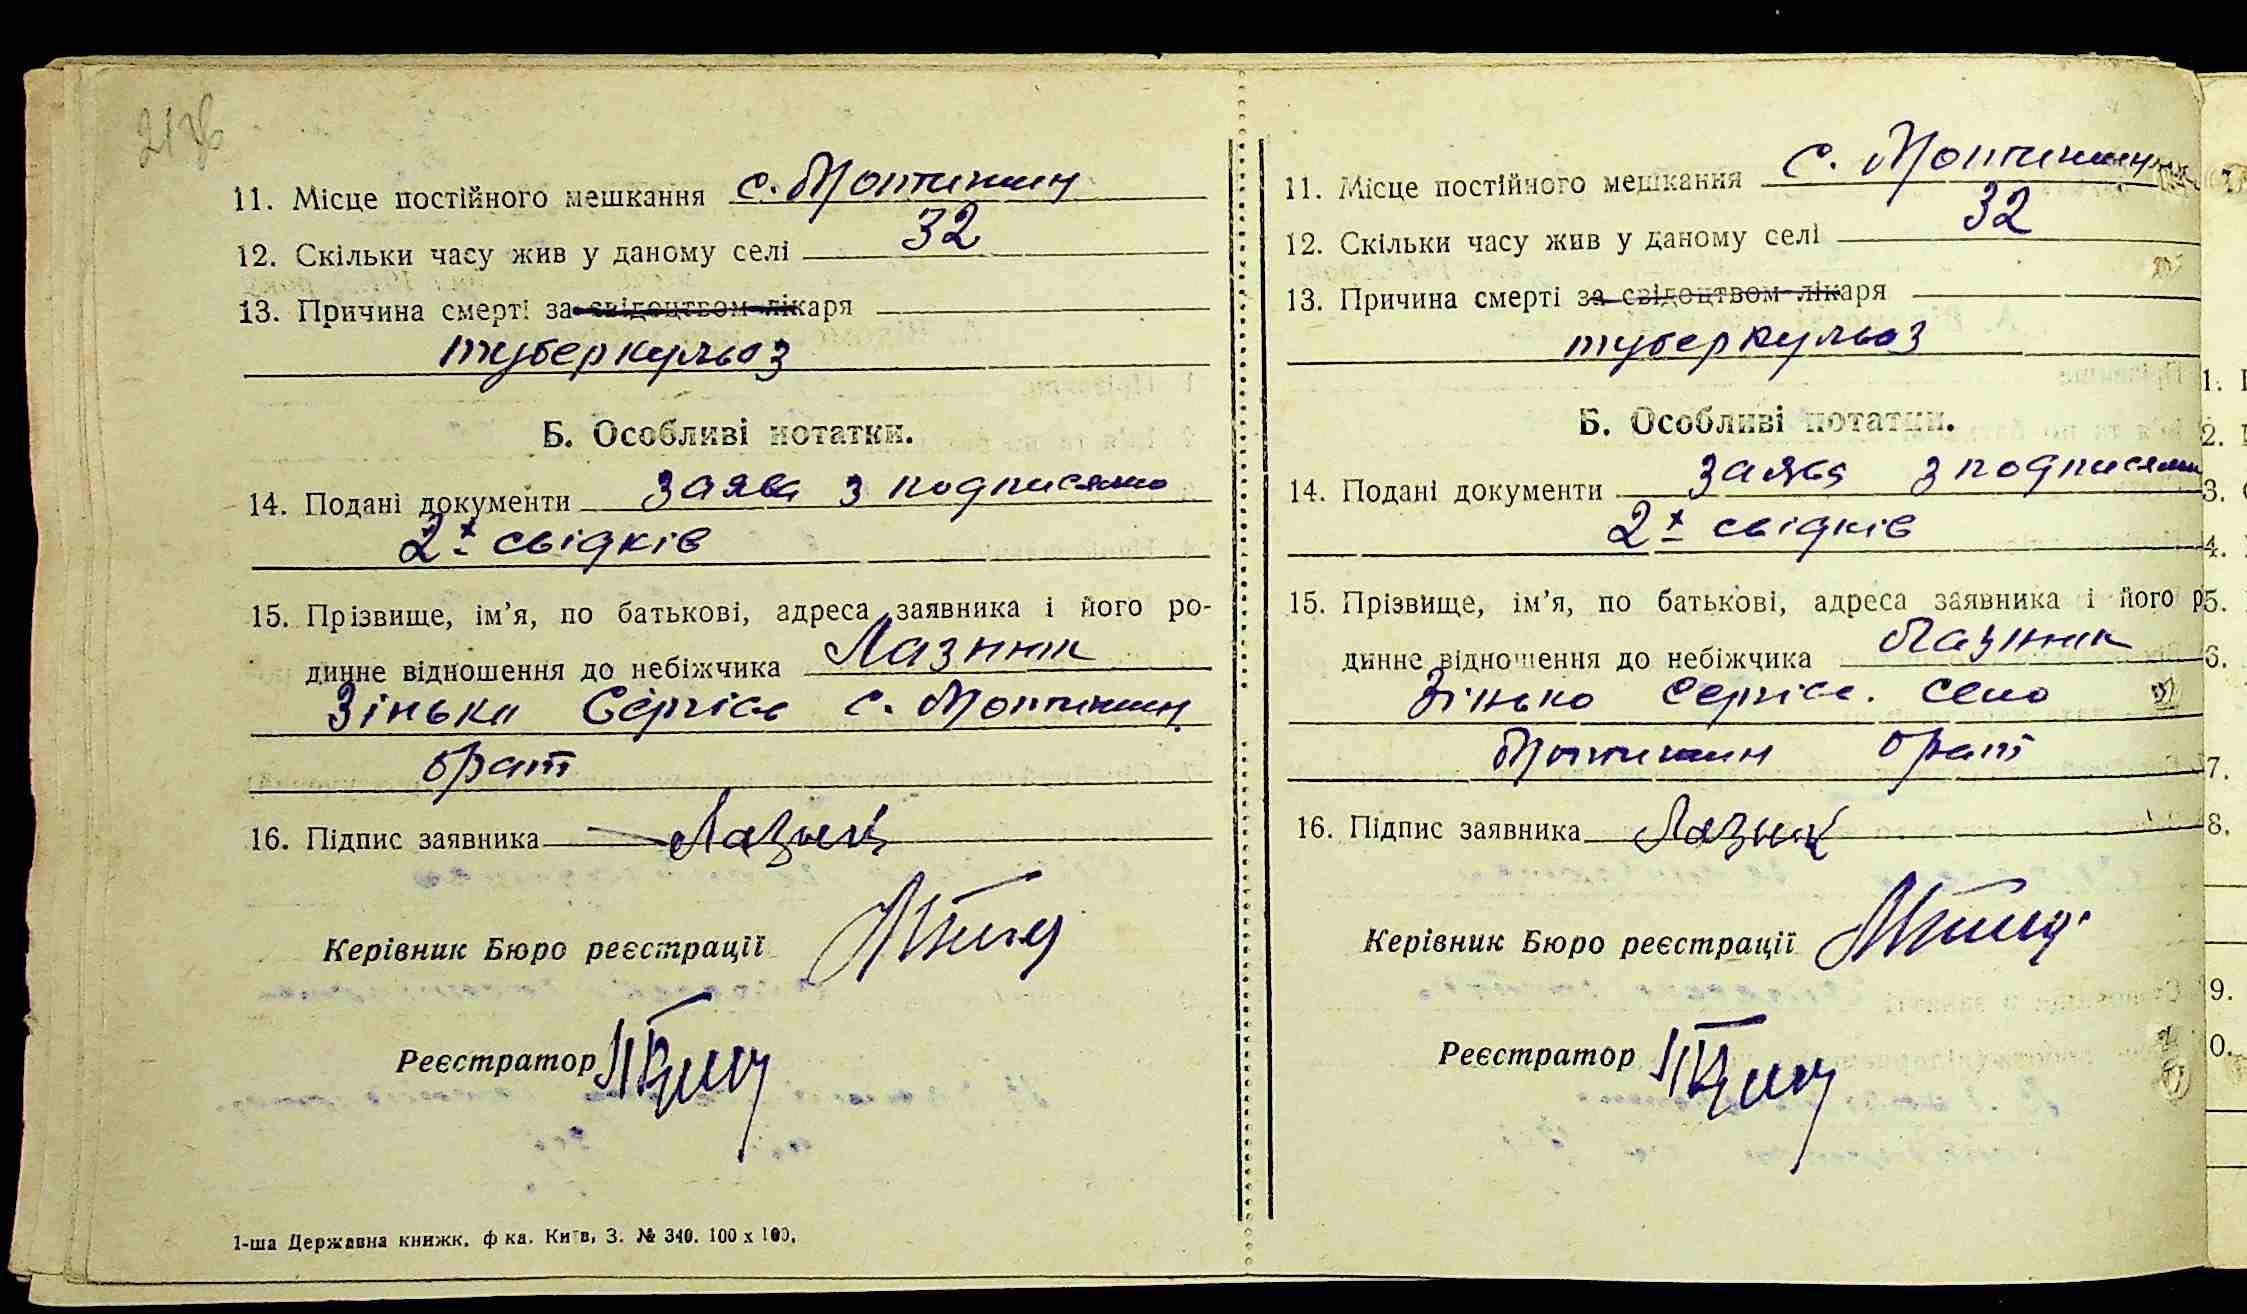 213б
11. Місце постійного мешкання с. Мотижин
12. Скільки часу жив у даному селі 32
13. Причина смерті за свідоцтвом лікаря
туберкульоз
Б. Особливі нотатки.
14. Подані документи заява з подписямо
2х свідків
15. Прізвище, ім’я, по батькові, адреса заявника і його ро-
динне відношення до небіжчика Лазник
Зінько Сергієв с. Мотижин
брат
16. Підпис заявника Лазник
Керівник Бюро реєстрації
Реєстратор
1-ша Державна книжк. ф ка. Київ, З. № 340. 100 х 100.
11. Місце постійного мешкання с. Мотижин
12. Скільки часу жив у даному селі 32
13. Причина смерті за свідоцтвом лікаря
туберкульоз
Б. Особливі нотатки.
14. Подані документи заява з подписями
2х свідків
15. Прізвище, ім’я, по батькові, адреса заявника і його р
динне відношення до небіжчика Лазник
Зінько Сергієв. село
Мотижин брат
16. Підпис заявника Лазник
Керівник Бюро реєстрації
Реєстратор
1.
2.
3.
4.
5.
6.
7.
8.
9.
0.